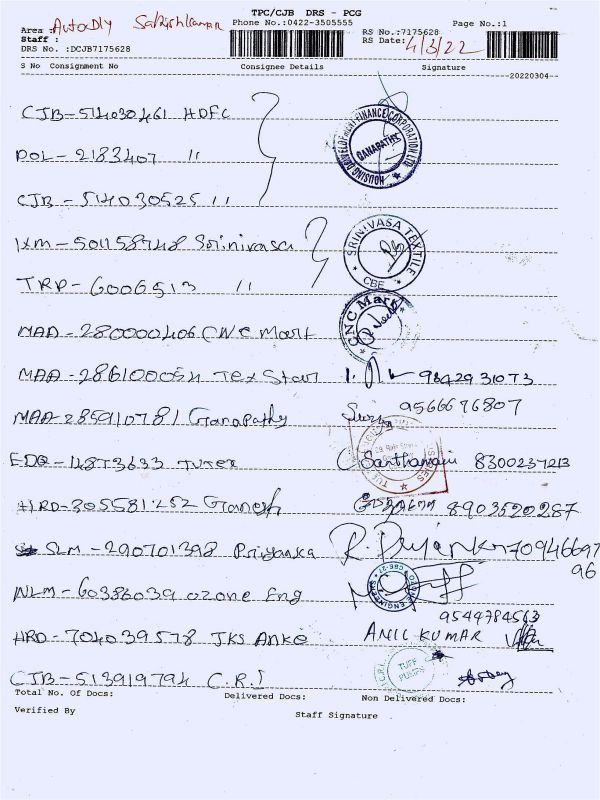 TPC/CJB DRS - PCG
Area : AutoDly Sathishkumar Phone No.:0422-3505555 RS No.:7175628 Page No.:1
Staff : RS Date: 4/3/22
DRS No. :DCJB7175628
S No Consignment No Consignee Details Signature
20220304
CJB-514030461 HDFC
POL-2183407 "
CJB-514030525 "
HOUSING DEVELOPMENT FINANCE CORPORATION LTD GANAPATHY
IXM-501158748 Srinivasa SRINIVASA TEXTILE CBE
TRP-6006513 "
MAA-280000406 CNC Mart CNC Mart
MAA-286100054 Tex Star 9842931073
MAA-285910781 Ganapathy 9566676807
EDQ-14873633 Tutex Santhamani 8300237213
HRD-305581252 Ganesh 8903520287
SLM-290701398 Priyanka R. Priyanka 70946697
96
NLM-60386039 Ozone Eng OZONE ENGINEERS CBE-27
9544784563
HRD-704039578 JKS Anko ANIL KUMAR
CJB-513919794 C.R.I TUFF PUMPS
Total No. Of Docs: Delivered Docs: Non Delivered Docs:
Verified By Staff Signature